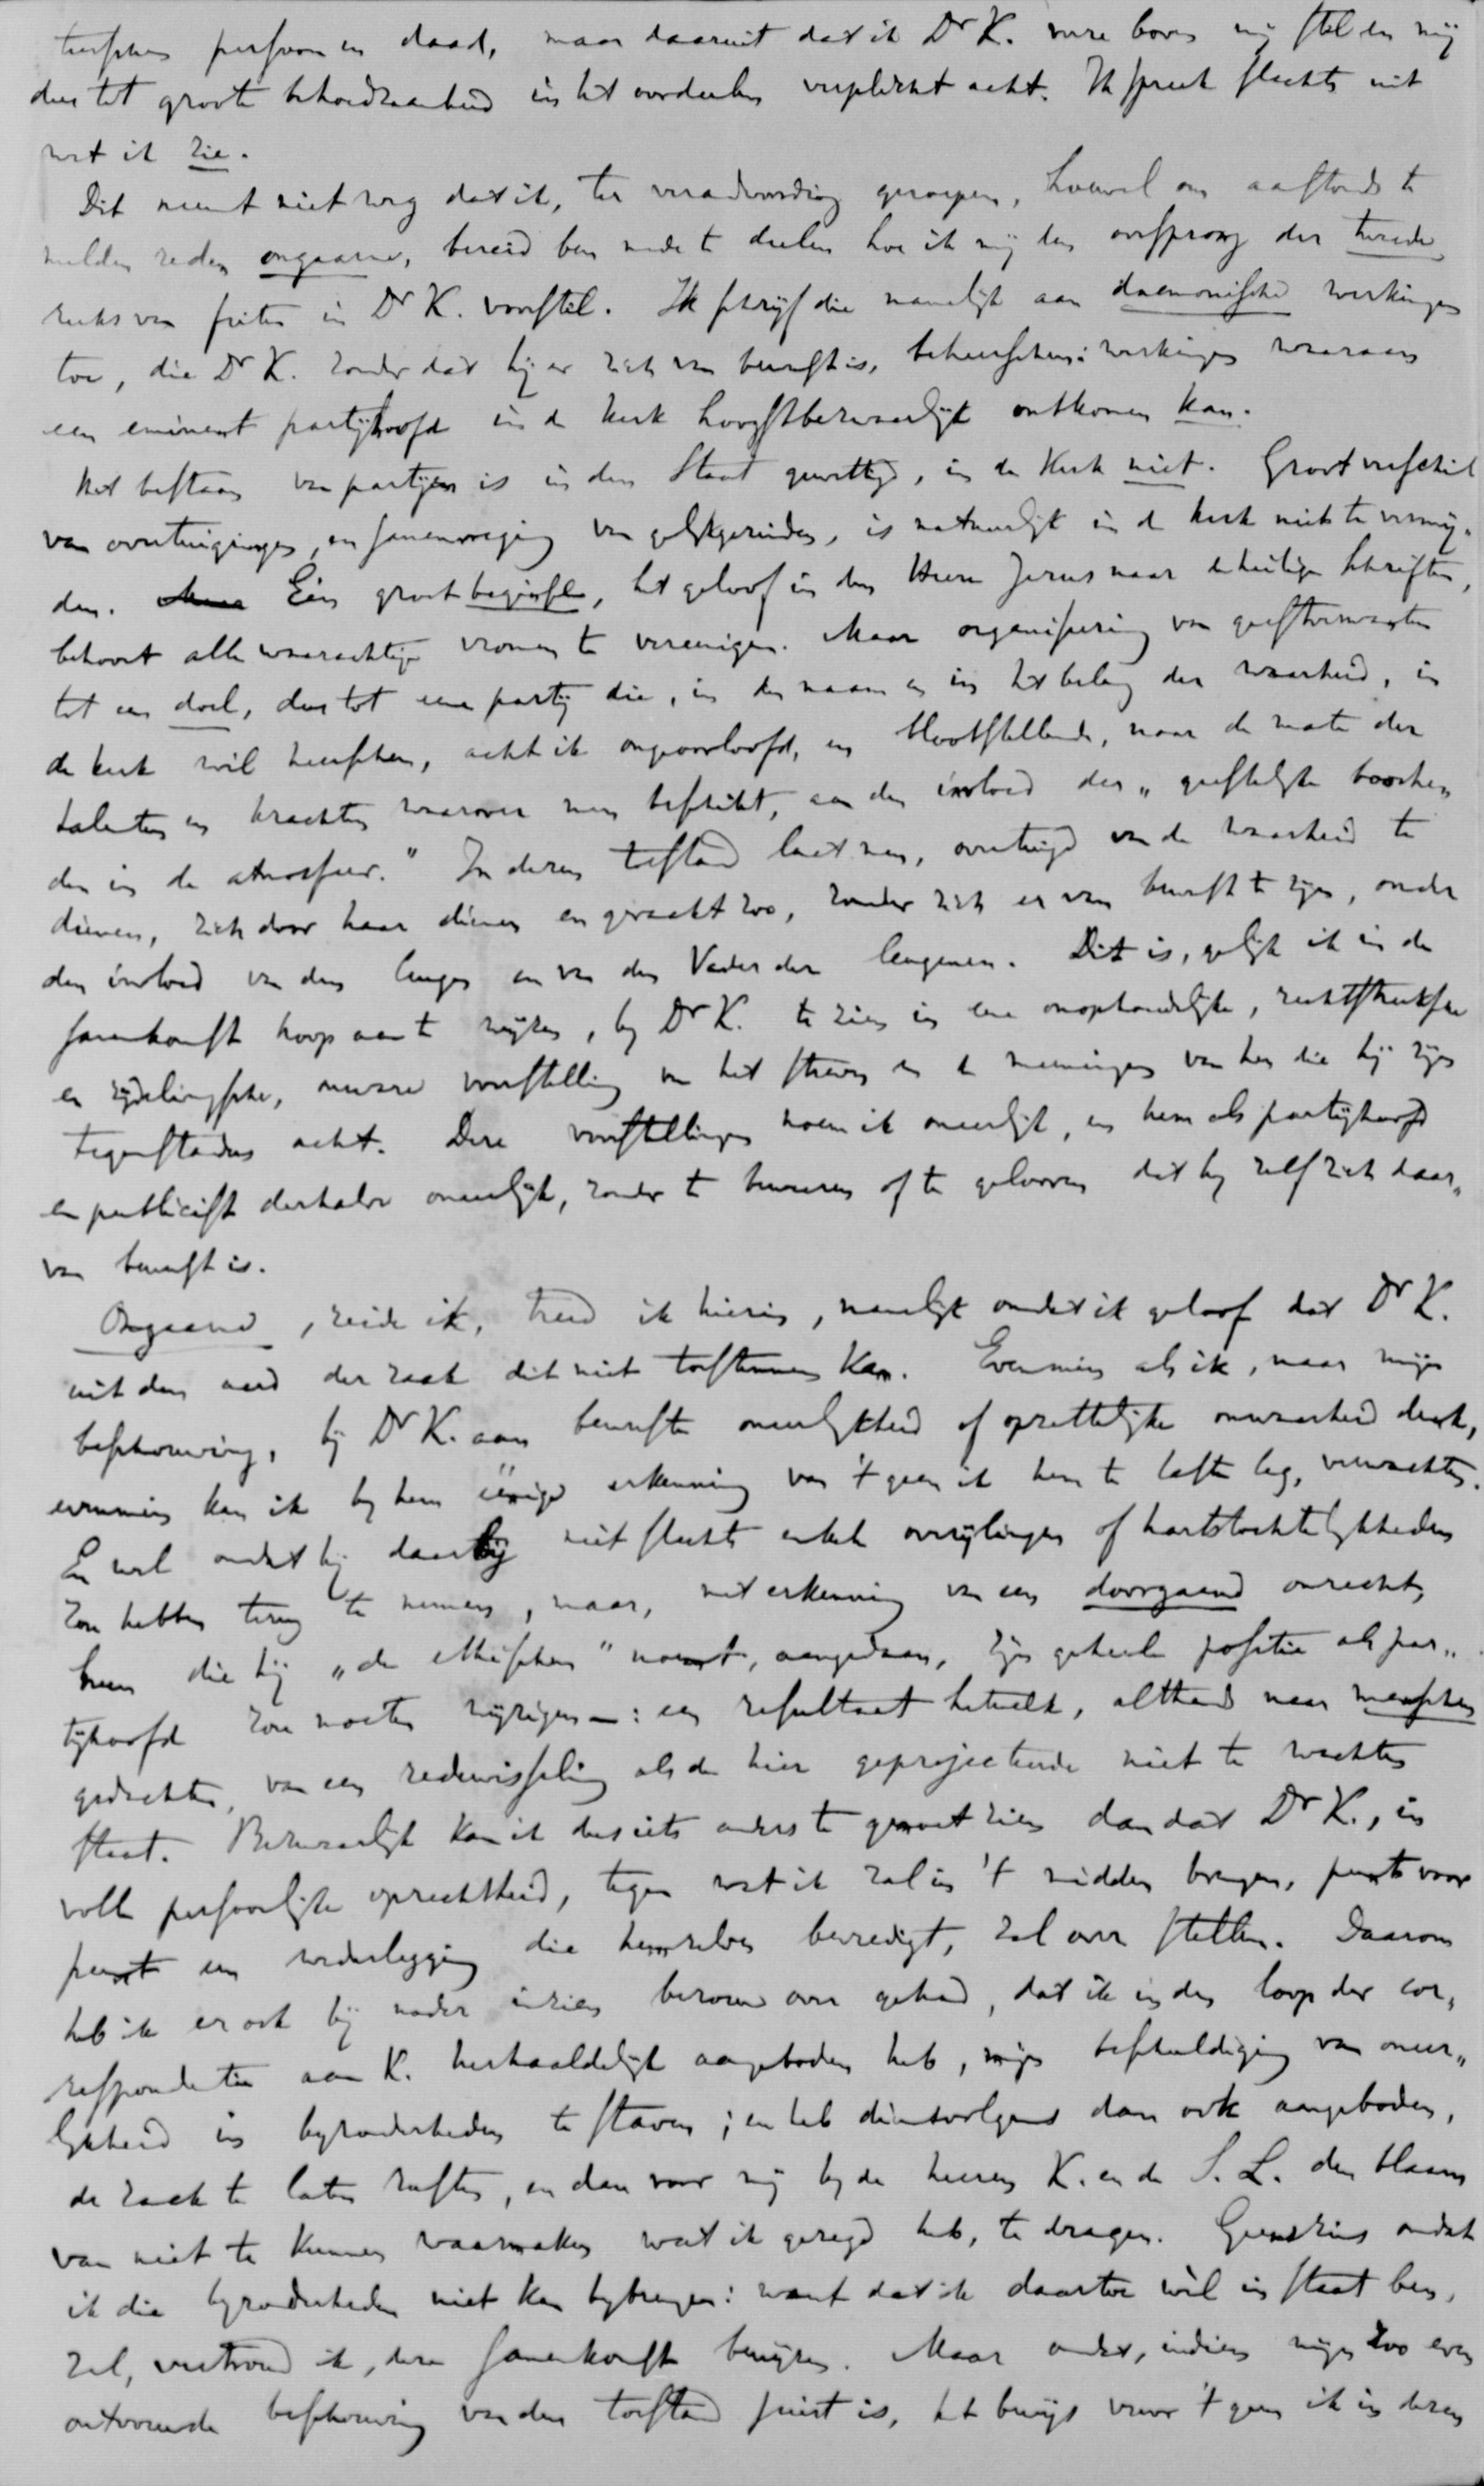 tusschen persoon en daad, maar daaruit dat ik Dr K. verre boven mij stel en mij
dus tot groote behoedzaamheid in het oordeelen verplicht acht. Ik spreek slechts uit
wat ik zie.
Dit neemt niet weg dat ik, ter verantwoording geroepen, hoewel om aanstonds te
melden reden ongaarne, bereid ben mede te deelen hoe ik mij den oorsprong der tweede
reeks van feiten in Dr K. voorstel. Ik schrijf die namelijk aan daemonische werkingen
toe, die Dr K. zonder dat hij er zich van bewust is, beheerschen: werkingen waaraan
een eminent partijhoofd in de kerk hoogstbezwaarlijk ontkomen kan.
Het bestaan van partijen is in den Staat gewettigd, in de Kerk niet. Groot verschil
van overtuigingen, en samenvoeging van gelijkgezinden, is natuurlijk in de kerk niet te vermij-
den. Eén groot beginsel, het geloof in den Heere Jezus naar de heilige Schriften,
behoort alle waarachtige vromen te vereenigen. Maar organiseering van geestverwanten
tot een doel, dus tot eene partij die, in den naam en in het belang der waarheid, in
de kerk wil heerschen, acht ik ongeoorloofd, en blootstellende, naar de mate der
talenten en krachten waarover men beschikt, aan den invloed der „geestelijke boosheden
den in de atmosfeer." In dezen toestand laat men, overtuigd van de waarheid te
dienen, zich door haar dienen en geraakt zoo, zonder zich er van bewust te zijn, onder
den invloed van den leugen en van den Vader der leugenen. Dit is, gelijk ik in de
samenkomst hoop aan te wijzen, bij Dr K. te zien in eene onophoudelijke, rechtstreeksche
en zijdelingsche, onware voorstelling van het streven en de meeningen van hen die hij zijn
tegenstanders acht. Deze voorstellingen noem ik oneerlijk, en hem als partijhoofd
en publicist derhalve oneerlijk, zonder te beweren of te gelooven dat hij zelf zich daar-
van bewust is.
Ongaarne, zeide ik, treed ik hierin, namelijk omdat ik geloof dat Dr K.
uit den aard der zaak dit niet toestemmen kan. Evenmin als ik, naar mijn
beschouwing, bij Dr K. aan bewuste oneerlijkheid of opzettelijke onwaarheid denk,
evenmin kan ik bij hem eenige erkenning van 't geen ik hem te laste leg, verwachten.
En wel omdat hij daarbij niet slechts enkele overijlingen of hartstochtelijkheden
zou hebben terug te nemen, maar, met erkenning van een doorgaand onrecht,
hun die hij „de ethischen" noemt, aangedaan, zijn geheele positie als par-
tijhoofd zou moeten wijzigen —: een resultaat hetwelk, althans naar menschen
gedachten, van een redewisseling als de hier geprojecteerde niet te wachten
staat. Bezwaarlijk kan ik dus iets anders te gemoet zien dan dat Dr K., in
volle persoonlijke oprechtheid, tegen wat ik zal in 't midden brengen, punt voor
punt een wederlegging die hemzelven bevredigt, zal over stellen. Daarom
heb ik er ook bij nader inzien berouw over gehad, dat ik in den loop der cor-
respondentie aan K. herhaaldelijk aangeboden heb, mijn beschuldiging van oneer-
lijkheid in bijzonderheden te staven; en heb dientsvolgens dan ook aangeboden,
de zaak te laten rusten, en dan voor mij bij de heeren K. en de S. L. den blaam
van niet te kunnen waarmaken wat ik gezegd heb, te dragen. Geenszins omdat
ik die bijzonderheden niet kan bijbrengen: want dat ik daartoe wèl in staat ben,
zal, vertrouw ik, deze samenkomst bewijzen. Maar omdat, indien mijn zoo even
ontvouwde beschouwing van den toestand juist is, het bewijs voor 't geen ik in dezen